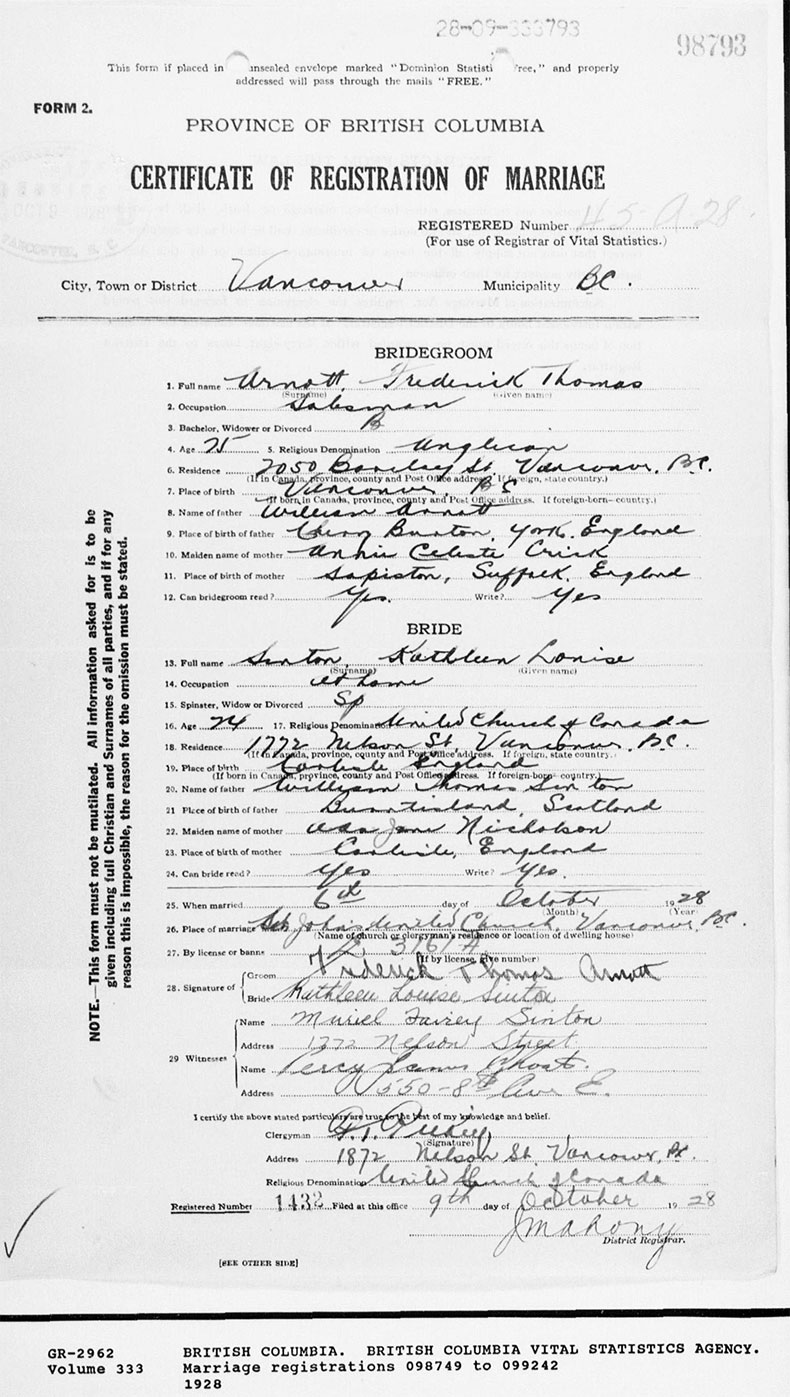 28-09-333793
98793
This form if placed in unsealed envelope marked "Dominion Statisti Free," and properly
addressed will pass through the mails "FREE."
FORM 2.
PROVINCE OF BRITISH COLUMBIA
CERTIFICATE OF REGISTRATION OF MARRIAGE
OCT 9
VANCOUVER, B.C.
REGISTERED Number 45-A-28
(For use of Registrar of Vital Statistics.)
City, Town or District Vancouver Municipality BC.
BRIDEGROOM
1. Full name Arnott, Frederick Thomas
(Surname) (Given name)
2. Occupation Salesman
3. Bachelor, Widower or Divorced B
4. Age 25 5. Religious Denomination Anglican
6. Residence 2050 Barclay St, Vancouver, B.C.
(If in Canada, province, county and Post Office address. If foreign, state country.)
7. Place of birth Vancouver, BC
(If born in Canada, province, county and Post Office address. If foreign-born—country.)
8. Name of father William Arnott
9. Place of birth of father Burton, York, England
10. Maiden name of mother Annie Celeste Crick
11. Place of birth of mother Sapiston, Suffolk, England
12. Can bridegroom read? Yes. Write? Yes
BRIDE
13. Full name Sinton, Kathleen Louise
(Surname) (Given name)
14. Occupation At home
15. Spinster, Widow or Divorced Sp
16. Age 24 17. Religious Denomination United Church of Canada
18. Residence 1772 Nelson St, Vancouver, B.C.
(If in Canada, province, county and Post Office address. If foreign, state country.
19. Place of birth Carlisle England
(If born in Canada, province, county and Post Office address. If foreign-born country.)
20. Name of father William Thomas Sinton
21 Place of birth of father Burntisland, Scotland
22. Maiden name of mother Jane Nicholson
23. Place of birth of mother Carlisle, England
24. Can bride read? Yes Write? Yes.
25. When married 6th day of October 1928
(Month) (Year)
26. Place of marriage St Johns United Church, Vancouver, BC.
(Name of church or clergyman's residence or location of dwelling house)
27. By license or banns L 3761 A
(If by license, give number)
28. Signature of Groom Frederick Thomas Arnott
Bride Kathleen Louise Sinton
29 Witnesses Name Muriel Fairey Sinton
Address 1772 Nelson Street
Name Percy James
Address 550-8th Ave E.
I certify the above stated particulars are true to the best of my knowledge and belief.
Clergyman
(Signature)
Address 1872 Nelson St, Vancouver, BC.
Religious Denomination United Church of Canada
Registered Number 1432 Filed at this office 9th day of October 1928
J Mahony
District Registrar.
[SEE OTHER SIDE]
NOTE.—This form must not be mutilated. All information asked for is to be
given including full Christian and Surnames of all parties, and if for any
reason this is impossible, the reason for the omission must be stated.
GR-2962 BRITISH COLUMBIA. BRITISH COLUMBIA VITAL STATISTICS AGENCY.
Volume 333 Marriage registrations 098749 to 099242
1928